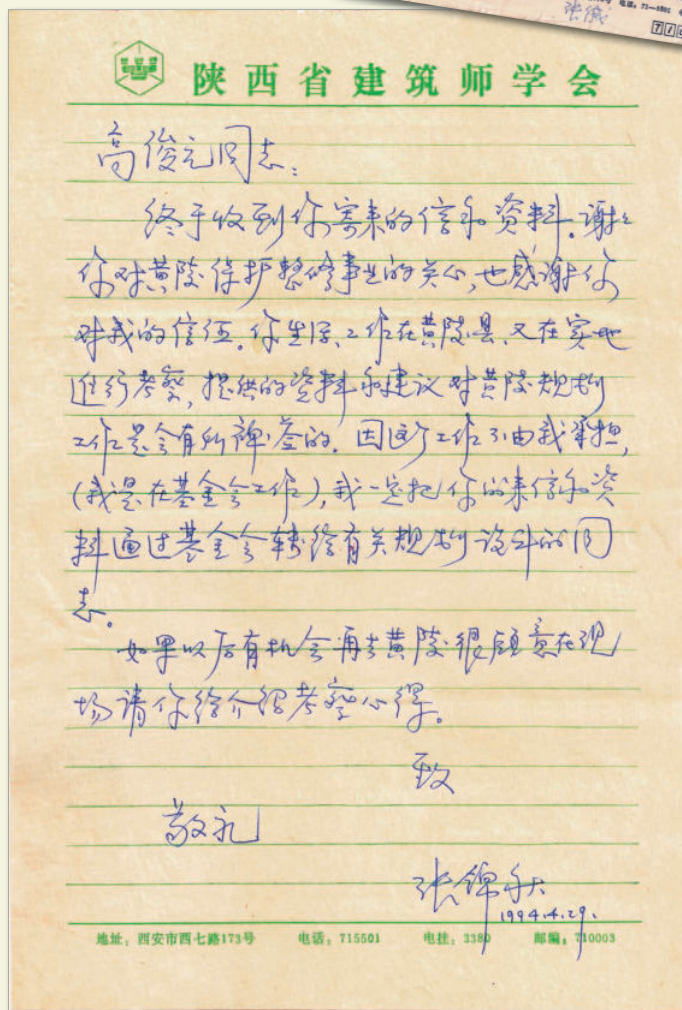 张
陕西省建筑师学会
高俊元同志:
终于收到你寄来的信和资料。谢谢
你对黄陵保护整修事业的关心,也感谢你
对我的信任。你生活、工作在黄陵县,又在实地
进行考察,提供的资料和建议对黄陵规划
工作是会有所裨益的。因这个工作不由我承担,
(我是在基金会工作),我一定把你的来信和资
料通过基金会转给有关规划设计的同
志。
如果以后有机会再去黄陵很愿意在现
场请你给介绍考察心得。
致
敬礼
张锦秋
1994.4.29.
地址:西安市西七路173号 电话:715501 电挂:3380 邮编:710003